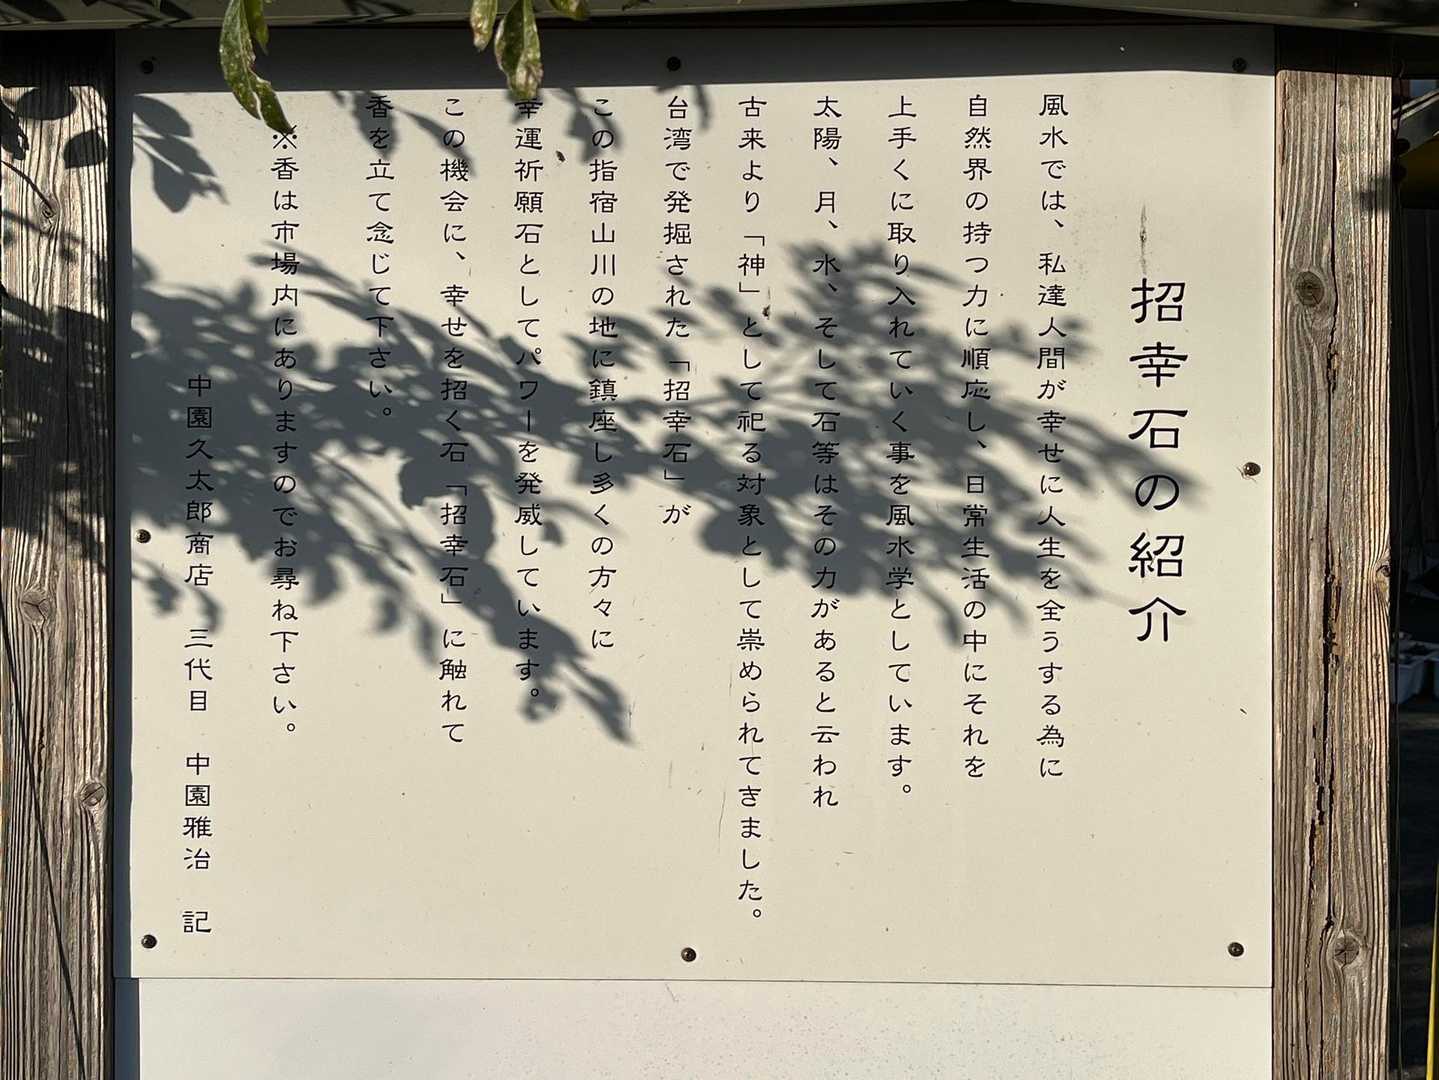 招幸石の紹介
風水では、私達人間が幸せに人生を全うする為に
自然界の持つ力に順応し、日常生活の中にそれを
上手くに取り入れていく事を風水学としています。
太陽、月、水、そして石等はその力があると云われ
古来より「神」として祀る対象として崇められてきました。
台湾で発掘された「招幸石」が
この指宿山川の地に鎮座し多くの方々に
幸運祈願石としてパワーを発威しています。
この機会に、幸せを招く石「招幸石」に触れて
香を立て念じて下さい。
※香は市場内にありますのでお尋ね下さい。
中園久太郎商店 三代目 中園雅治 記